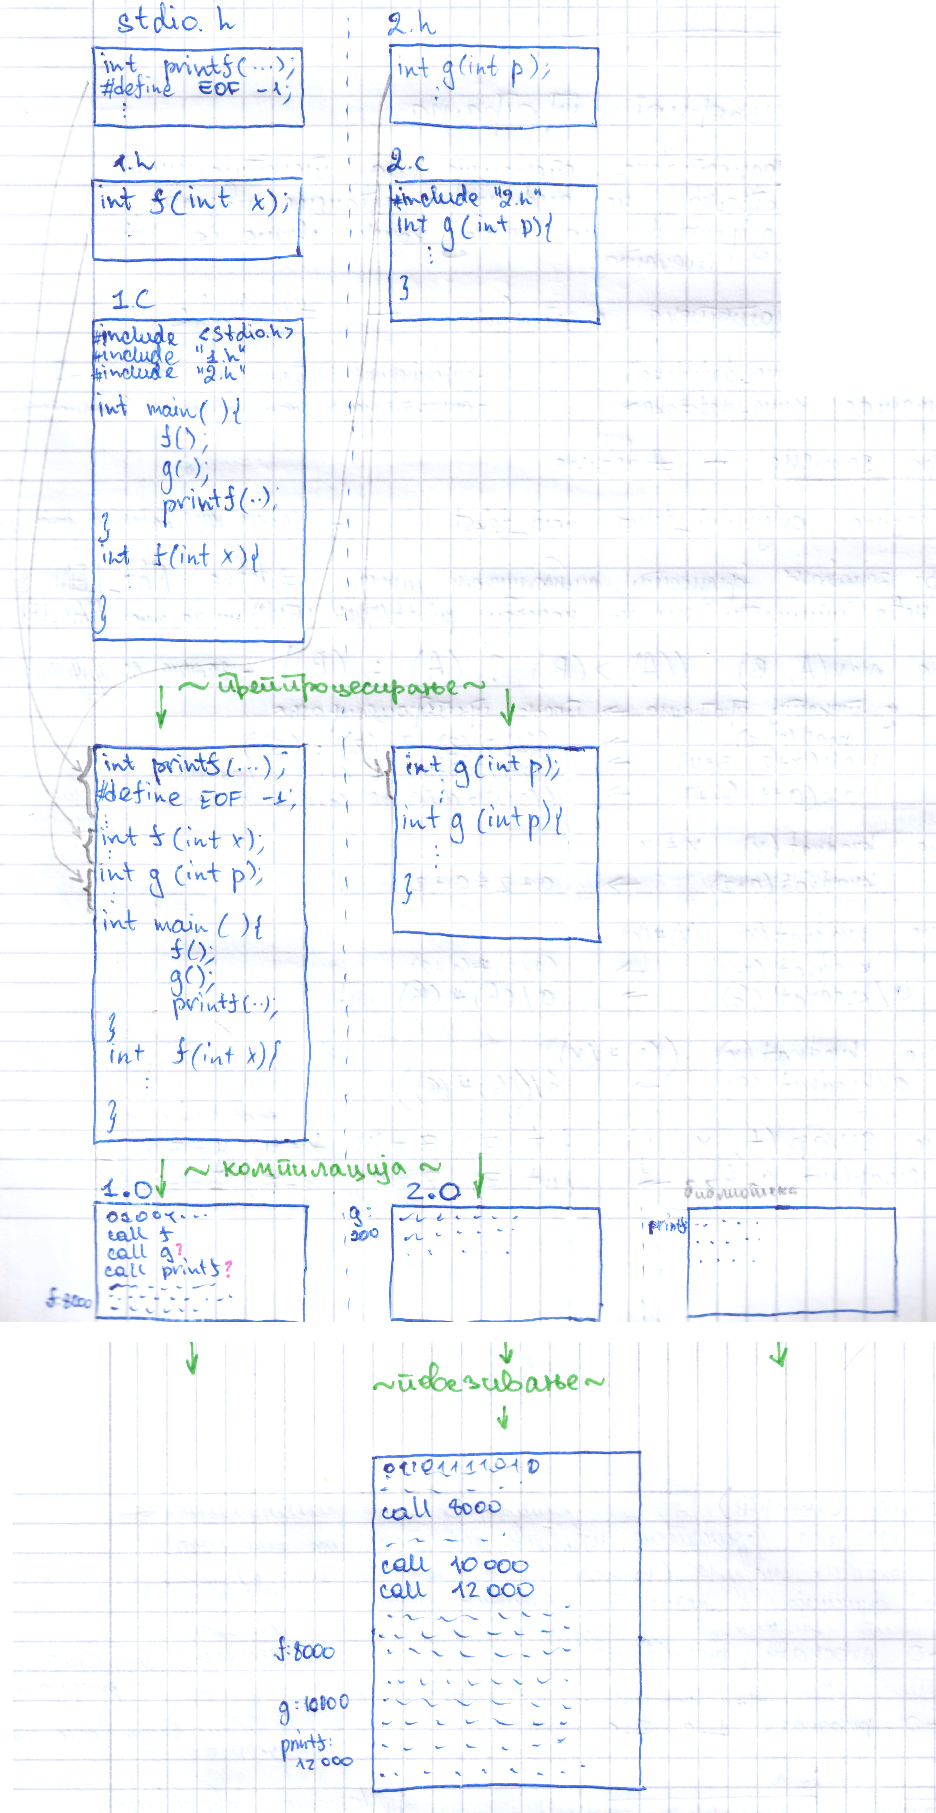 stdio.h
int printf(...);
#define EOF -1;
2.h
int g(int p);
1.h
int f(int x);
2.c
#include "2.h"
int g(int p){
}
1.c
#include <stdio.h>
#include "1.h"
#include "2.h"
int main( ){
f();
g( );
printf(..);
}
int f(int x){
}
~ претпроцесирање ~
int printf(...);
#define EOF -1;
int f(int x);
int g (int p);
int main ( ){
f();
g();
printf(..);
}
int f(int x){
}
int g(int p);
int g (int p){
}
~ компилација ~
1.0
01001...
call f
call g?
call printf?
f:8000
2.0
g:
200
библиотека
printf
~повезивање~
01101111010
call 8000
call 10 000
call 12 000
f:8000
g:10000
printf:
12 000